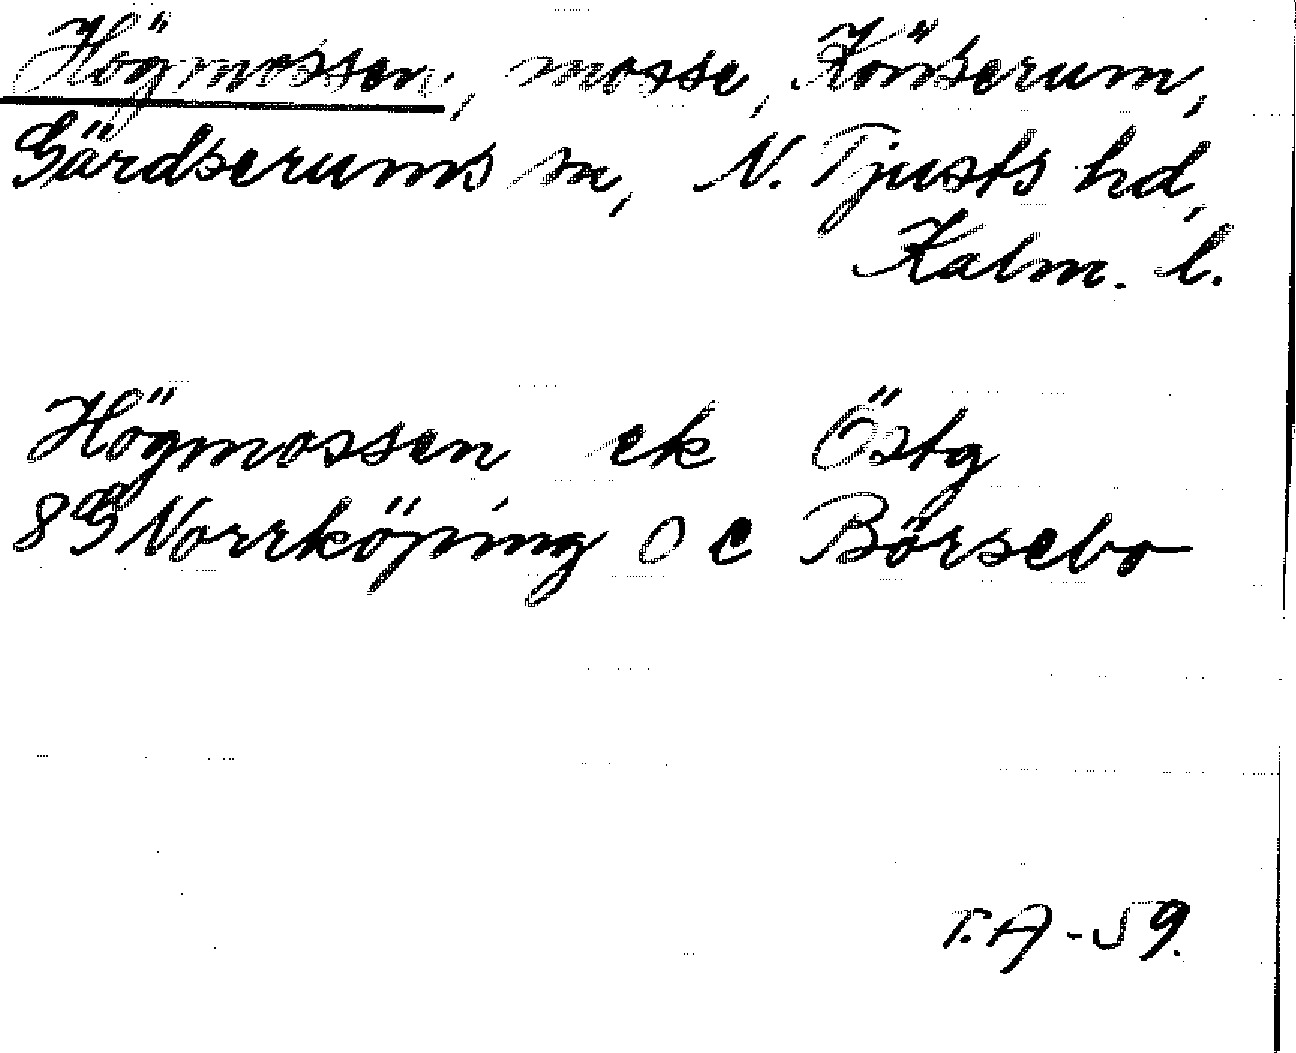 Högmossen, mosse, Könserum,
Gärdserums sn, N. Tjusts hd,
Kalm. l.
Högmossen ek Östg
8G Norrköping 0 c Börsebo
T.A-59.